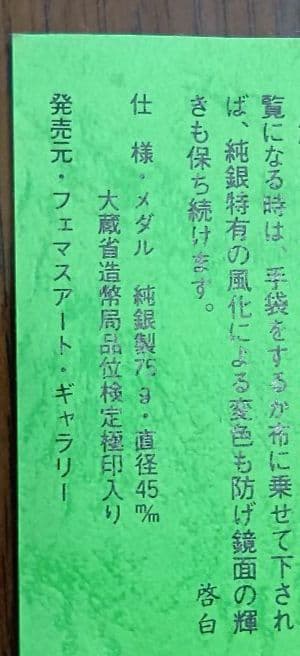 覧になる時は、手袋をするか布に乗せて下され
ば、純銀特有の風化による変色も防げ鏡面の輝
きも保ち続けます。
啓白
仕様・メダル 純銀製75g・直径45m/m
大蔵省造幣局品位検定極印入り
発売元・フェマスアート・ギャラリー